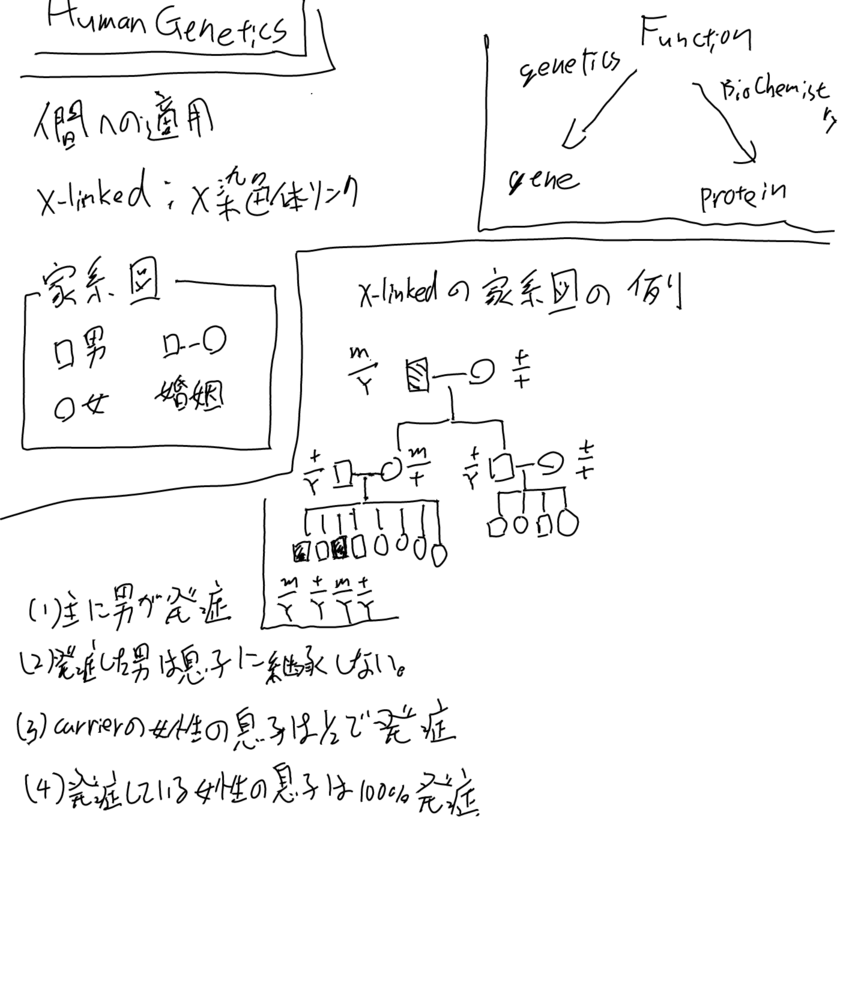 Human Genetics
人間への適用
X-linked : X染色体リンク
Function
genetics
BioChemistry
gene
protein
家系図
□男 □-○
○女 婚姻
X-linkedの家系図の例
m/Y +/+
+/Y m/+ +/Y +/+
m/Y +/Y m/Y +/Y
(1)主に男が発症
(2)発症した男は息子に継承しない。
(3)carrierの女性の息子は1/2で発症
(4)発症している女性の息子は100%発症